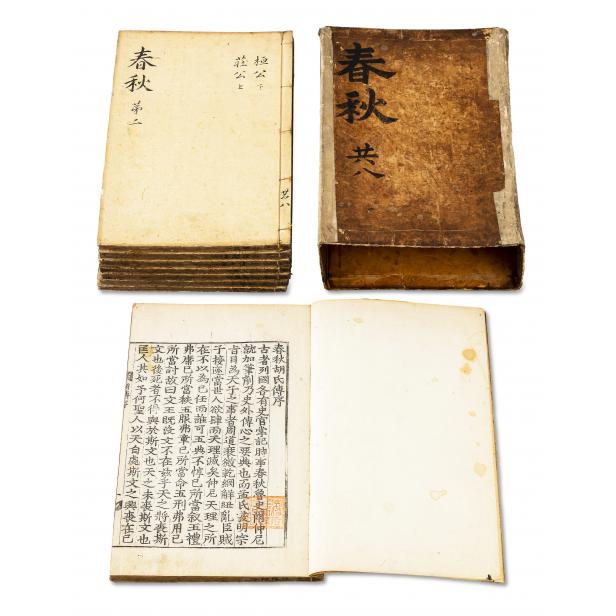 春秋
第二
桓公下
莊公上
共八
春秋
共八
春秋胡氏傳序
古者列國各有史官掌記時事春秋魯史爾仲尼
就加筆削乃史外傳心之要典也而孟氏發明宗
旨目為天子之事者周道衰微乾綱解紐亂臣賊
子接迹當世人欲肆而天理滅矣仲尼天理之所
在不以為己任而誰可五典不惇己所當敍五禮
弗庸己所當秩五服弗章己所當命五刑弗用己
所當討故曰文王旣沒文不在玆乎天之將喪斯
文也後死者不得與於斯文也天之未喪斯文也
匡人其如予何聖人以天自處斯文之興喪在己